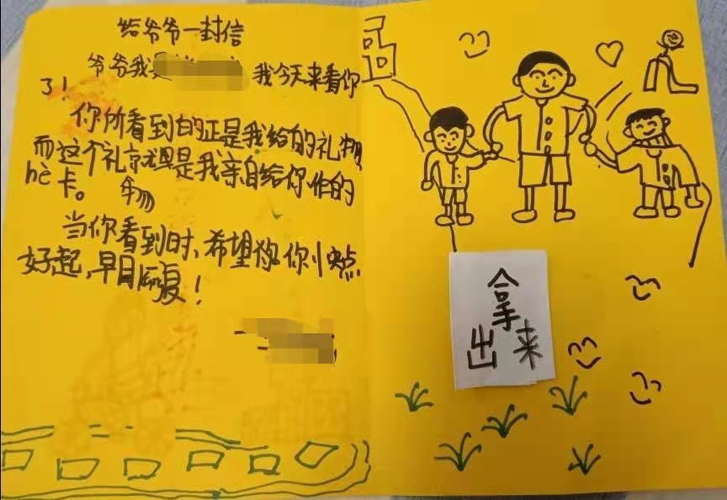 给爷爷一封信
爷爷我是 我今天来看你
了！
你所看到的正是我给的礼物
而这个礼 就是我亲自给你作的
hè卡。 物
当你看到时、希望你 快点
好起,早日康复！
拿
出来